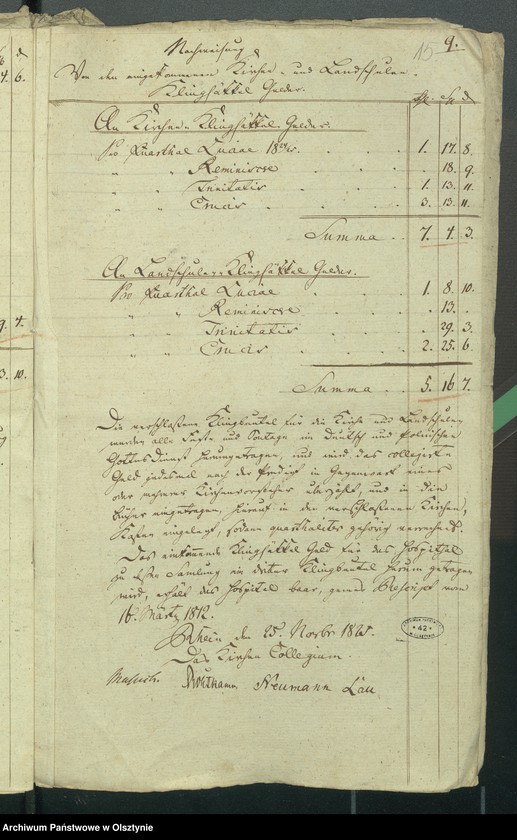 15 9.
Nachweisung
Von den eingekommenen Kirchen- und Landschulen-
Klingsäckel Gelder.
d.
An Kirchen-Klingsäckel-Gelder.
Pro Quarthal Luciae . . . 1. 17. 8.
" " Reminiscere . . . . 18. 9.
" " Trinitatis . . . 1. 13. 11.
" " Crucis . . . 3. 13. 11.
Summa . . 7. 4. 3.
An Landschulen-Klingsäckel Gelder.
Pro Quarthal Luciae . . . 1. 8. 10.
" " Reminiscere . . . . 13. .
" " Trinitatis . . . . 29. 3.
" " Crucis . . . 2. 25. 6.
Summa . . 5. 16. 7.
Die verschlossene Klingbeutel für die Kirche und Landschulen
werden alle Feste und Sontage im Deutsch und Polnischen
Gottes Dienst herumgetragen, und wird das collegirte
Geld jedesmal nach der Predigt in Gegenwart eines
oder mehrerer Kirchenvorsteher überzählt, und in die
Bücher eingetragen, hierauf in den verschlossenen Kirchen,
Kasten eingelegt, sodann quarthaliter gehörig verrechnet.
Das einkommende Klingsäckel Geld für das Hospithal
zu Samlung ein dritter Klingbeutel herum getragen
wird, erhält das Hospital baar, gemäs Rescript vom
16. Märtz 1812.
Rhein den 25. Novbr
Das Kirchen Collegium.
Neumann Lau
42
Archiwum Państwowe w Olsztynie